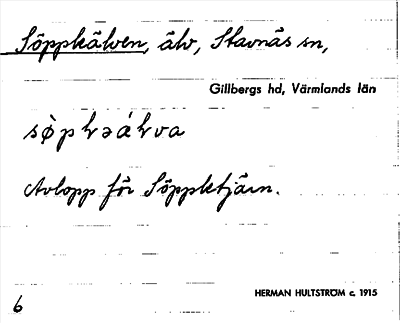 Söppkälven, älv, Stavnäs sn,
Gillbergs hd, Värmlands län
Avlopp för Söppketjärn.
HERMAN HULTSTRÖM c. 1915
6